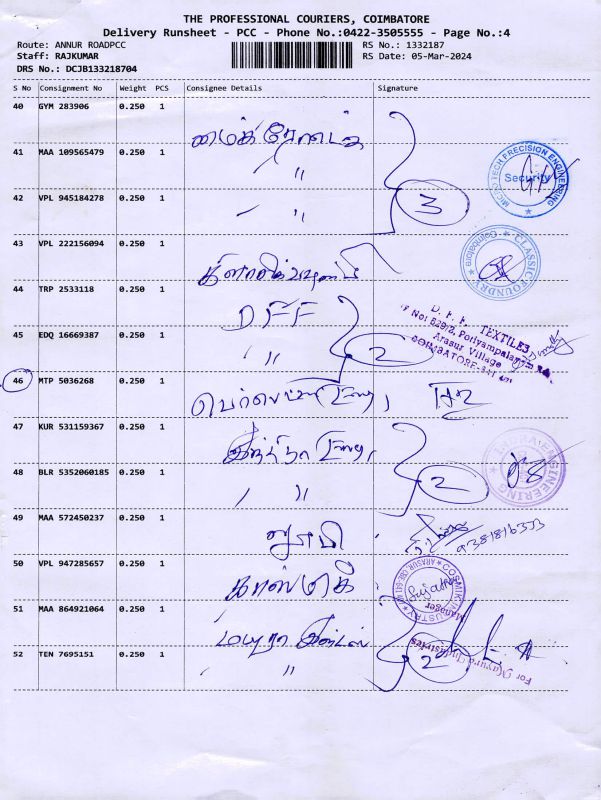 THE PROFESSIONAL COURIERS, COIMBATORE
Delivery Runsheet - PCC - Phone No.:0422-3505555 - Page No.:4
Route: ANNUR ROADPCC RS No.: 1332187
Staff: RAJKUMAR RS Date: 05-Mar-2024
DRS No.: DCJB133218704
S No Consignment No Weight PCS Consignee Details Signature
40 GYM 283906 0.250 1 மைக்ரோடைக்
41 MAA 109565479 0.250 1 〃
MICRO TECH PRECISION ENGINEERING
Security
42 VPL 945184278 0.250 1 〃 3
43 VPL 222156094 0.250 1
CLASSIC FOUNDRY Coimbatore
44 TRP 2533118 0.250 1 DFF
D. F. F. TEXTILES
45 EDQ 16669387 0.250 1 〃 2
Arasur Village
46 MTP 5036268 0.250 1
47 KUR 531159367 0.250 1
INDRA ENGINEERING
48 BLR 5352060185 0.250 1 〃 2
49 MAA 572450237 0.250 1
50 VPL 947285657 0.250 1 காஸ்மிகி
COSMIK INDUSTRY
Manager
51 MAA 864921064 0.250 1 மயூரா இன்டஸ்
52 TEN 7695151 0.250 1 〃 2
For Mayura Industries